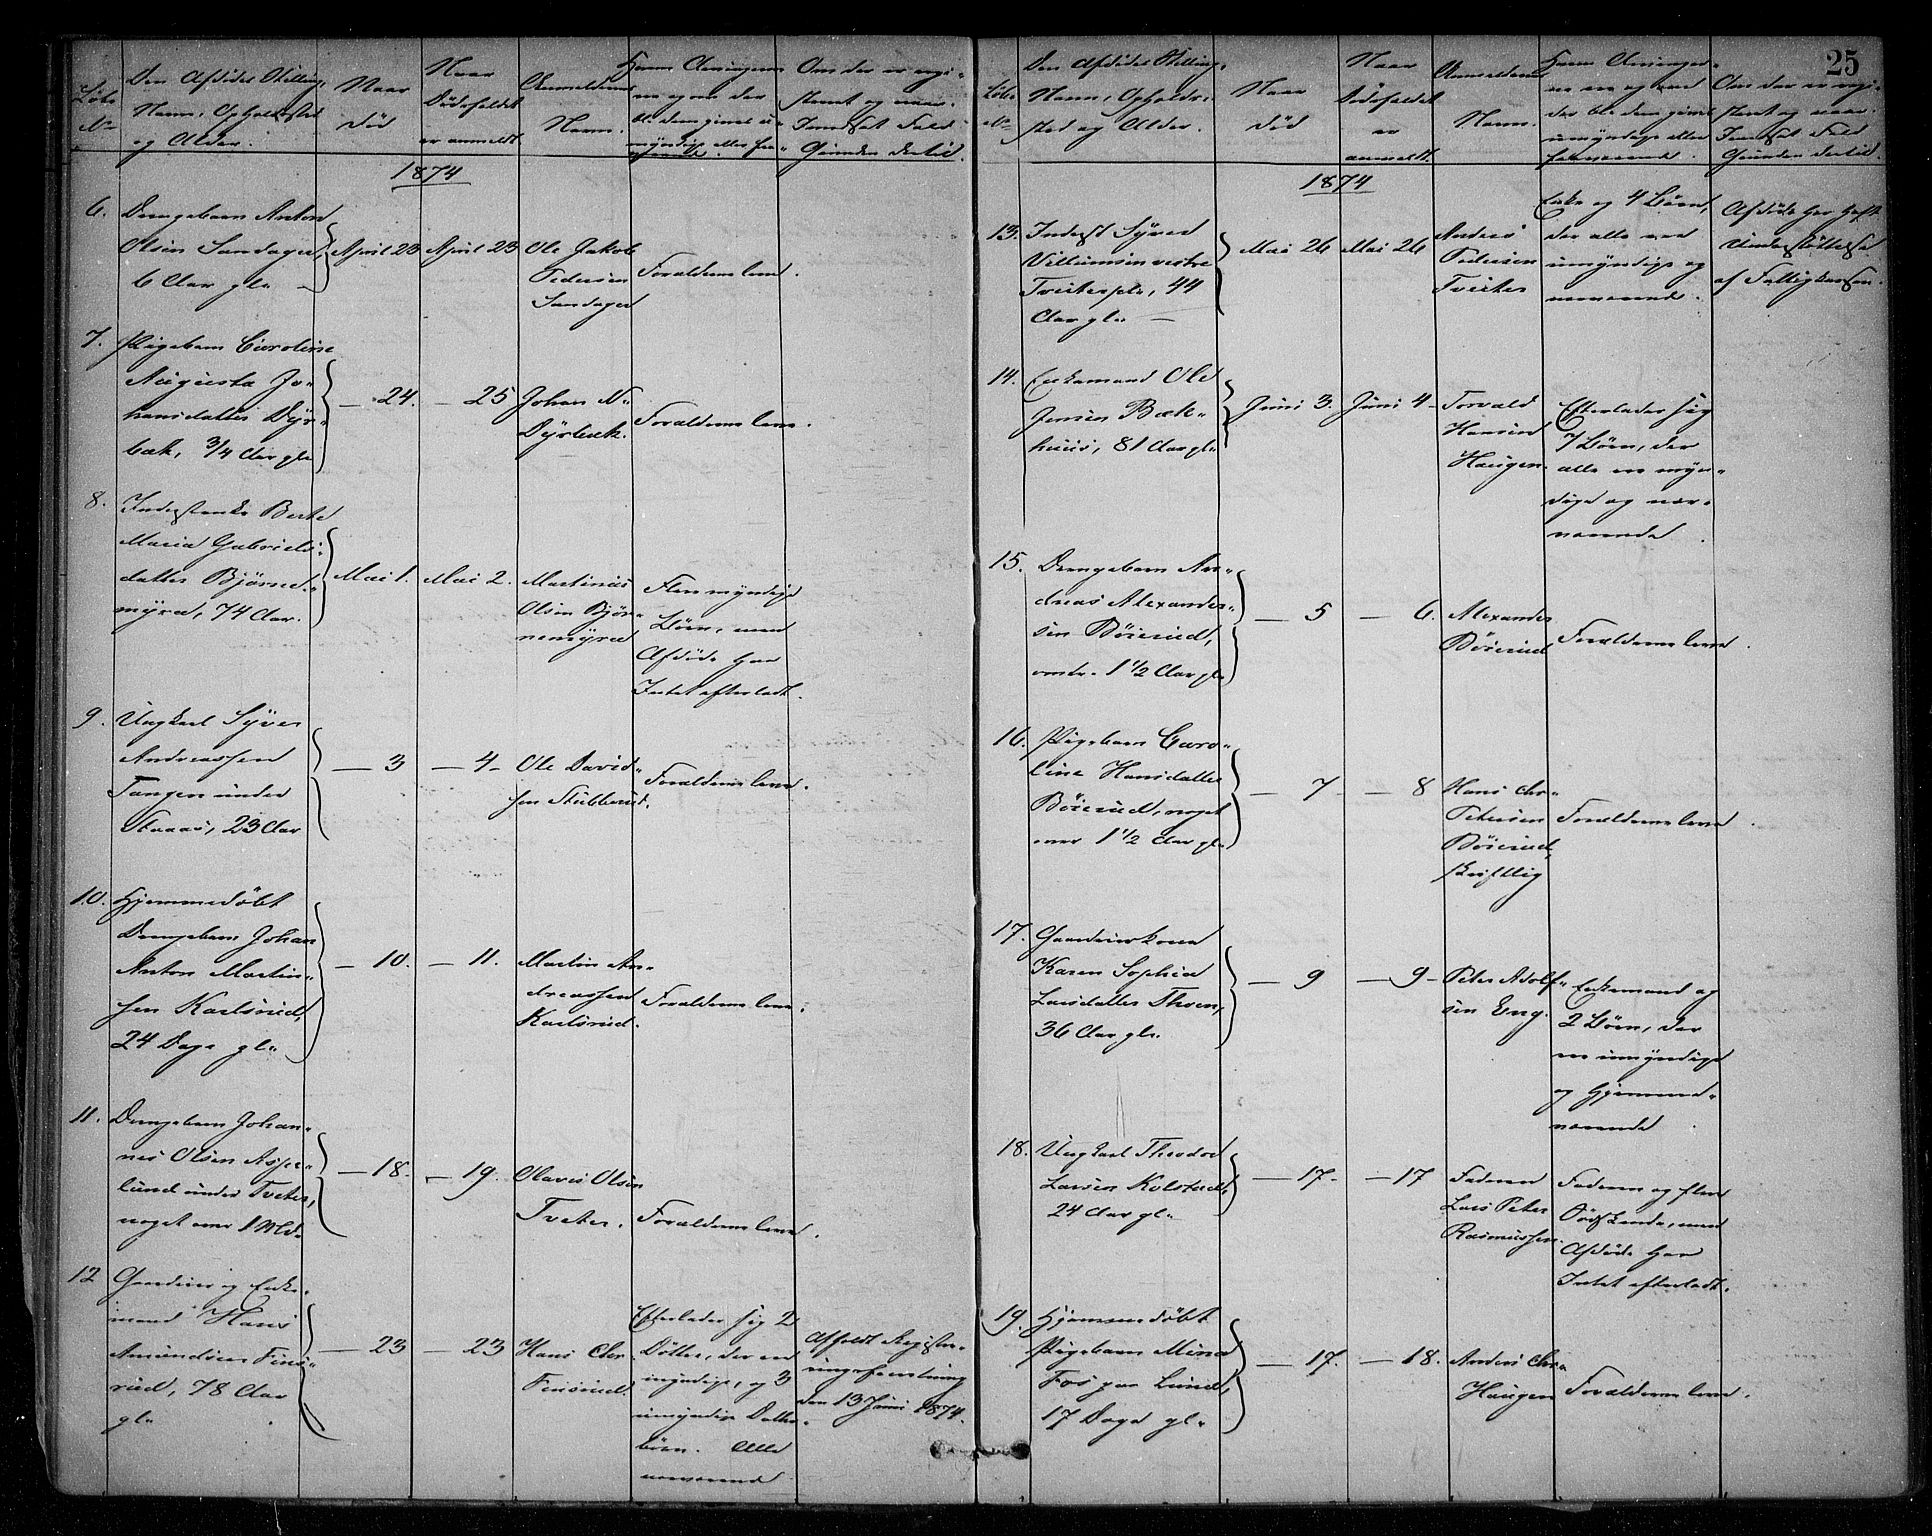 25
Løbe
No
Den Afdødes Stilling,
Navn, Opholdssted
og Alder.
Naar
død
Naar
Dødsfaldet
er anmeldt.
Anmelderens
Navn.
1874
6.
Drengebarn Anton
Olsen Sandager,
6 Aar gl.
April 23
April 23
Ole Jakob
Pedersen
Sandager
Forældrene leve.
7.
Pigebarn Caroline
Augusta Jo-
hansdatter Dyr-
bæk, 3/4 Aar gl.
— 24.
— 25
Johan N.
Dyrbæk.
Forældrene leve.
8.
Inderstenke Berte
Maria Gabriels-
datter Bjørne-
myra, 74 Aar.
Mai 1.
Mai 2.
Martinius
Olsen Bjør-
nemyra
Flere myndige
Børn, men
Afdøde har
Intet efterladt.
9.
Ungkarl Syver
Andreassen
Tangen under
23 Aar
— 3
— 4 -
Ole David-
sen Stubberud.
Forældrene leve.
10.
Hjemmedøbt
Drengebarn Johan
Anton Martin-
sen Karlsrud,
24 Dage gl.
— 10.
— 11.
Martin An-
dreassen
Karlsrud.
Forældrene leve.
11.
Drengebarn Johan-
nes Olsen Aspe-
lund under Tveter,
noget over 1 Md.
— 18.
— 19.
Olavus Olsen
Tveter.
Forældrene leve.
12
Gaardeier og Enke-
mand Hans
Amundsen Fins-
rud, 78 Aar
gl.
— 23
— 23
Hans Chr.
Finsrud
Efterlader sig 2
Døttre, der ere
myndige, og 3
umyndige Datter-
børn. Alle
nærværende
Afholdt Registre-
ringsforretning
den 13 Juni 1874.
Løbe
No
Den Afdødes Stilling,
Navn, Opholds-
sted og Alder.
Naar
død
Naar
Dødsfaldet
er
anmeldt.
Anmelderens
Navn.
1874
13.
Inderst Syver
Villumsen vestre
Tveterpl., 44
Aar gl. —
Mai 26
Mai 26
Anders
Pedersen
Tveter
Enke og 4 Børn,
der alle ere
umyndige og
nærværende.
Afdøde har havt
Understøttelse
af Fattigkassen.
14.
Enkemand Ole
Jensen Bæk-
huus, 81 Aar gl.
Juni 3.
Juni 4 -
Torvald
Hansen
Haugen.
Efterlader sig
7 Børn, der
alle ere myn-
dige og nær-
værende.
15.
Drengebarn An-
dreas Alexander-
sen Böierud,
omtr. 1 1/2 Aar gl.
— 5
— 6.
Alexander
Böierud
Forældrene leve.
16.
Pigebarn Caro-
line Hansdatter
Böierud, noget
over 1 1/2 Aar gl.
— 7
— 8
Hans Chr.
Petersen
Böierud,
skriftlig
Forældrene leve.
17.
Gaardeierkone
Karen Sophie
Larsdatter Thoen,
36 Aar gl.
— 9
— 9 -
Peter Adolf-
sen Eng.
Enkemand og
2 Børn, der
ere umyndige
og Hjemme-
værende.
18.
Ungkarl Theodor
Larsen Kolstad,
24 Aar gl.
— 17.
— 17
Faderen
Lars Peter
Rasmussen.
Faderen og flere
Sødskende, men
Afdøde har
Intet efterladt.
19.
Hjemmedøbt
Pigebarn Mina
Fospar Lund,
17 Dage gl.
— 17.
— 18.
Anders Chr.
Haugen
Forældrene leve.